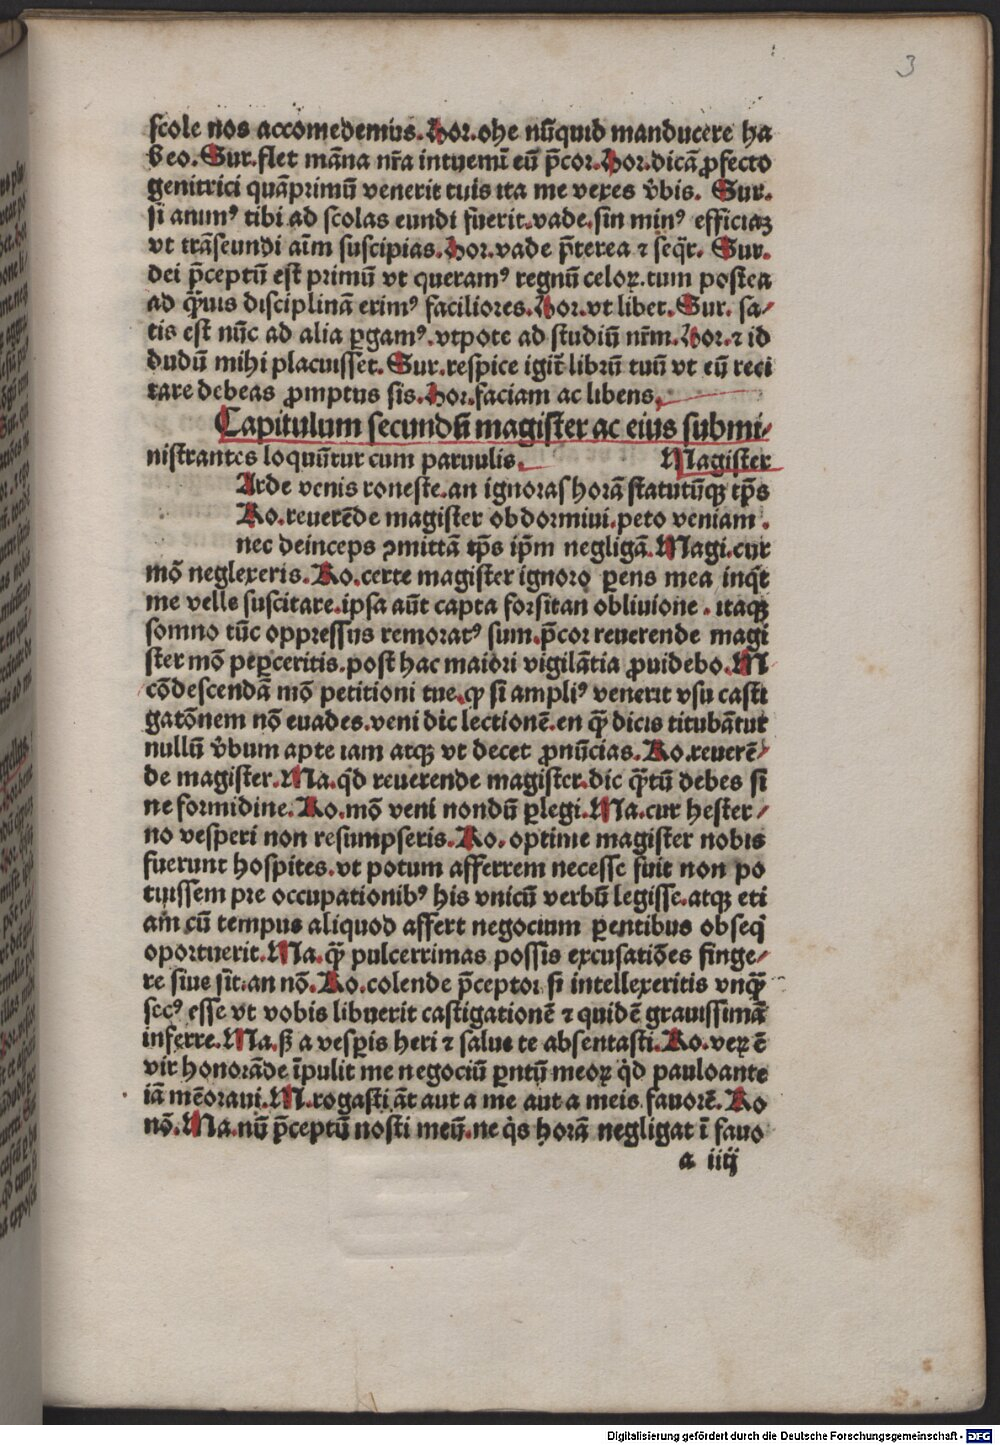 3
scole nos accomedemus. Hor. ohe nūquid manducere ha
beo. Sur. flet māna nr̄a intuemī eū p̄cor. Hor. dicā ꝓfecto
genitrici quāprimū venerit tuis ita me vexes v̄bis. Sur.
si animꝰ tibi ad scolas eundi fuerit. vade. sin minꝰ efficiaꝫ
vt trāseundi aīm suscipias. Hor. vade p̄terea ⁊ seqr̄. Sur.
dei p̄ceptū est primū vt queramꝰ regnū celoꝝ. tum postea
ad q̄uis disciplinā erimꝰ faciliores. Hor. vt libet. Sur. sa⸗
tis est nūc ad alia ꝑgamꝰ. vtpote ad studiū nr̄m. Hor. ⁊ id
dudū mihi placuisset. Sur. respice igit̄ librū tuū vt eū reci
tare debeas ꝓmptus sis. Hor. faciam ac libens.
Capitulum secundū magister ac eius submi⸗
nistrantes loquūtur cum paruulis. Magister
Arde venis roneste. an ignoras horā statutūqꝫ tp̄s
Ro. reuerēde magister obdormiui. peto veniam.
nec deinceps ꝯmittā tp̄s ip̄m negligā. Magi. cur
mō neglexeris. Ro. certe magister ignoro ꝑens mea inq̄t
me velle suscitare. ipsa aūt capta forsitan obliuione. itaqꝫ
somno tūc oppressus remoratꝰ sum. p̄cor reuerende magi
ster mō peꝑceritis. post hac maiori vigilātia ꝓuidebo. M
cōdescendā mō petitioni tue. qꝫ si ampliꝰ venerit vsu casti
gatōnem nō euades. veni dic lectionē. en q̄ dicis titubātur
nullū v̄bum apte iam atqꝫ vt decet ꝓnūcias. Ro. reuerē⸗
de magister. Ma. qd̄ reuerende magister. dic q̄tū debes si
ne formidine. Ro. mō veni nondū ꝑlegi. Ma. cur hester⸗
no vesperi non resumpseris. Ro. optime magister nobis
fuerunt hospites. vt potum afferrem necesse fuit non po
tuissem pre occupationibꝰ his vnicū verbū legisse. atqꝫ eti
am cū tempus aliquod affert negocium ꝑentibus obseq̄
oportuerit. Ma. q̄ pulcerrimas possis excusatiōes finge⸗
re siue sīt. an nō. Ro. colende p̄ceptor si intellexeritis vnq̄
secꝰ esse vt vobis libuerit castigationē ⁊ quidē grauissimā
inferre. Ma. ß a vesꝑis heri ⁊ salue te absentasti. Ro. veꝝ ē
vir honorāde īpulit me negociū ꝑntū meoꝝ qd̄ pauloante
iā mēoraui. M. rogasti āt aut a me aut a meis fauorē. Ro
nō. Ma. nū p̄ceptū nosti meū. ne q̄s horā negligat ī fauo
a iiij
Digitalisierung gefördert durch die Deutsche Forschungsgemeinschaft - DFG